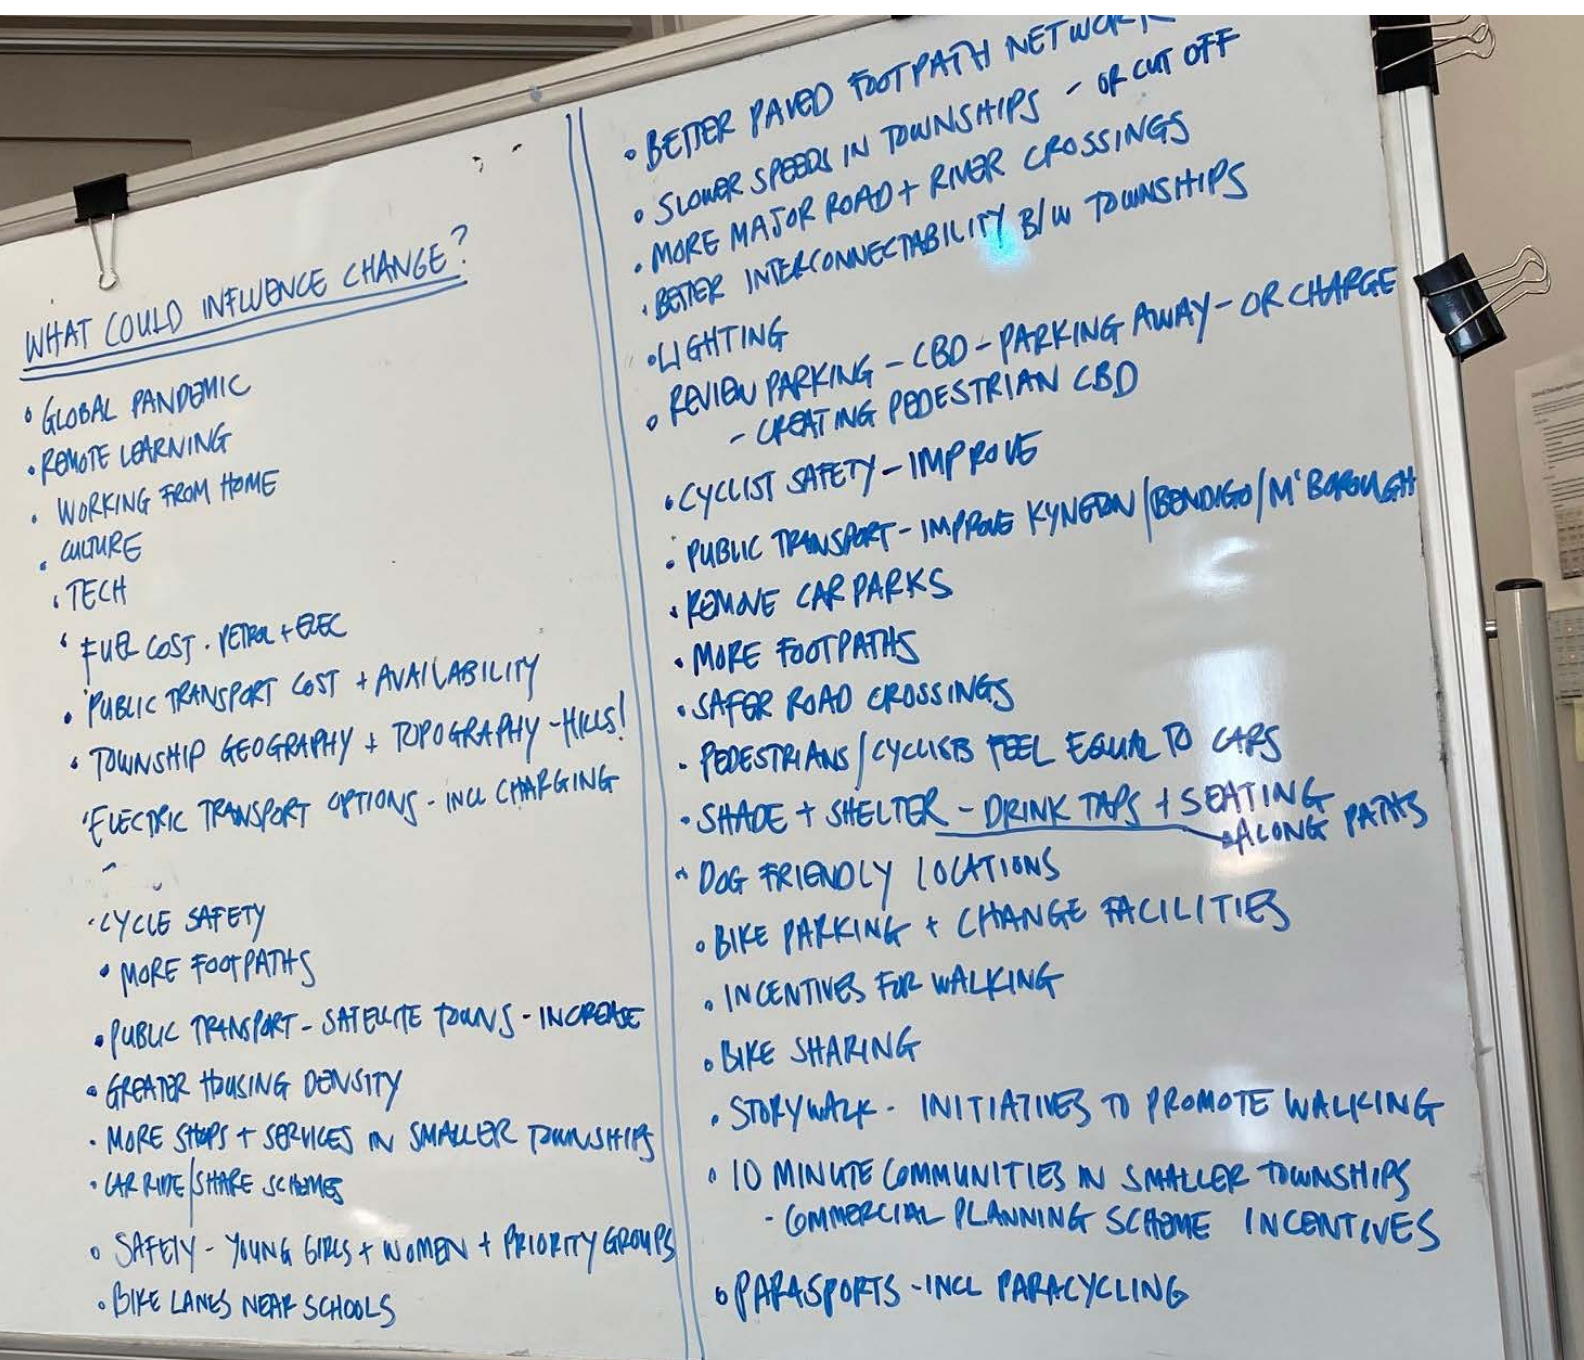 WHAT COULD INFLUENCE CHANGE?
• GLOBAL PANDEMIC
• REMOTE LEARNING
• WORKING FROM HOME
• CULTURE
• TECH
• FUEL COST. PETROL + ELEC
• PUBLIC TRANSPORT COST + AVAILABILITY
• TOWNSHIP GEOGRAPHY + TOPOGRAPHY - HILLS!
• ELECTRIC TRANSPORT OPTIONS - INCL CHARGING
• CYCLE SAFETY
• MORE FOOTPATHS
• PUBLIC TRANSPORT - SATELLITE TOWNS - INCREASE
• GREATER HOUSING DENSITY
• MORE SHOPS + SERVICES IN SMALLER TOWNSHIPS
• CAR RIDE/SHARE SCHEMES
• SAFETY - YOUNG GIRLS + WOMEN + PRIORITY GROUPS
• BIKE LANES NEAR SCHOOLS
• BETTER PAVED FOOTPATH NETWORK
• SLOWER SPEEDS IN TOWNSHIPS - OR CUT OFF
• MORE MAJOR ROAD + RIVER CROSSINGS
• BETTER INTERCONNECTABILITY B/W TOWNSHIPS
• LIGHTING
• REVIEW PARKING - CBD - PARKING AWAY - OR CHARGE
- CREATING PEDESTRIAN CBD
• CYCLIST SAFETY - IMPROVE
• PUBLIC TRANSPORT - IMPROVE KYNETON/BENDIGO/M'BOROUGH
• REMOVE CAR PARKS
• MORE FOOTPATHS
• SAFER ROAD CROSSINGS
• PEDESTRIANS/CYCLISTS FEEL EQUAL TO CARS
• SHADE + SHELTER - DRINK TAPS + SEATING
ALONG PATHS
• DOG FRIENDLY LOCATIONS
• BIKE PARKING + CHANGE FACILITIES
• INCENTIVES FOR WALKING
• BIKE SHARING
• STORYWALK - INITIATIVES TO PROMOTE WALKING
• 10 MINUTE COMMUNITIES IN SMALLER TOWNSHIPS
- COMMERCIAL PLANNING SCHEME INCENTIVES
• PARASPORTS - INCL PARACYCLING